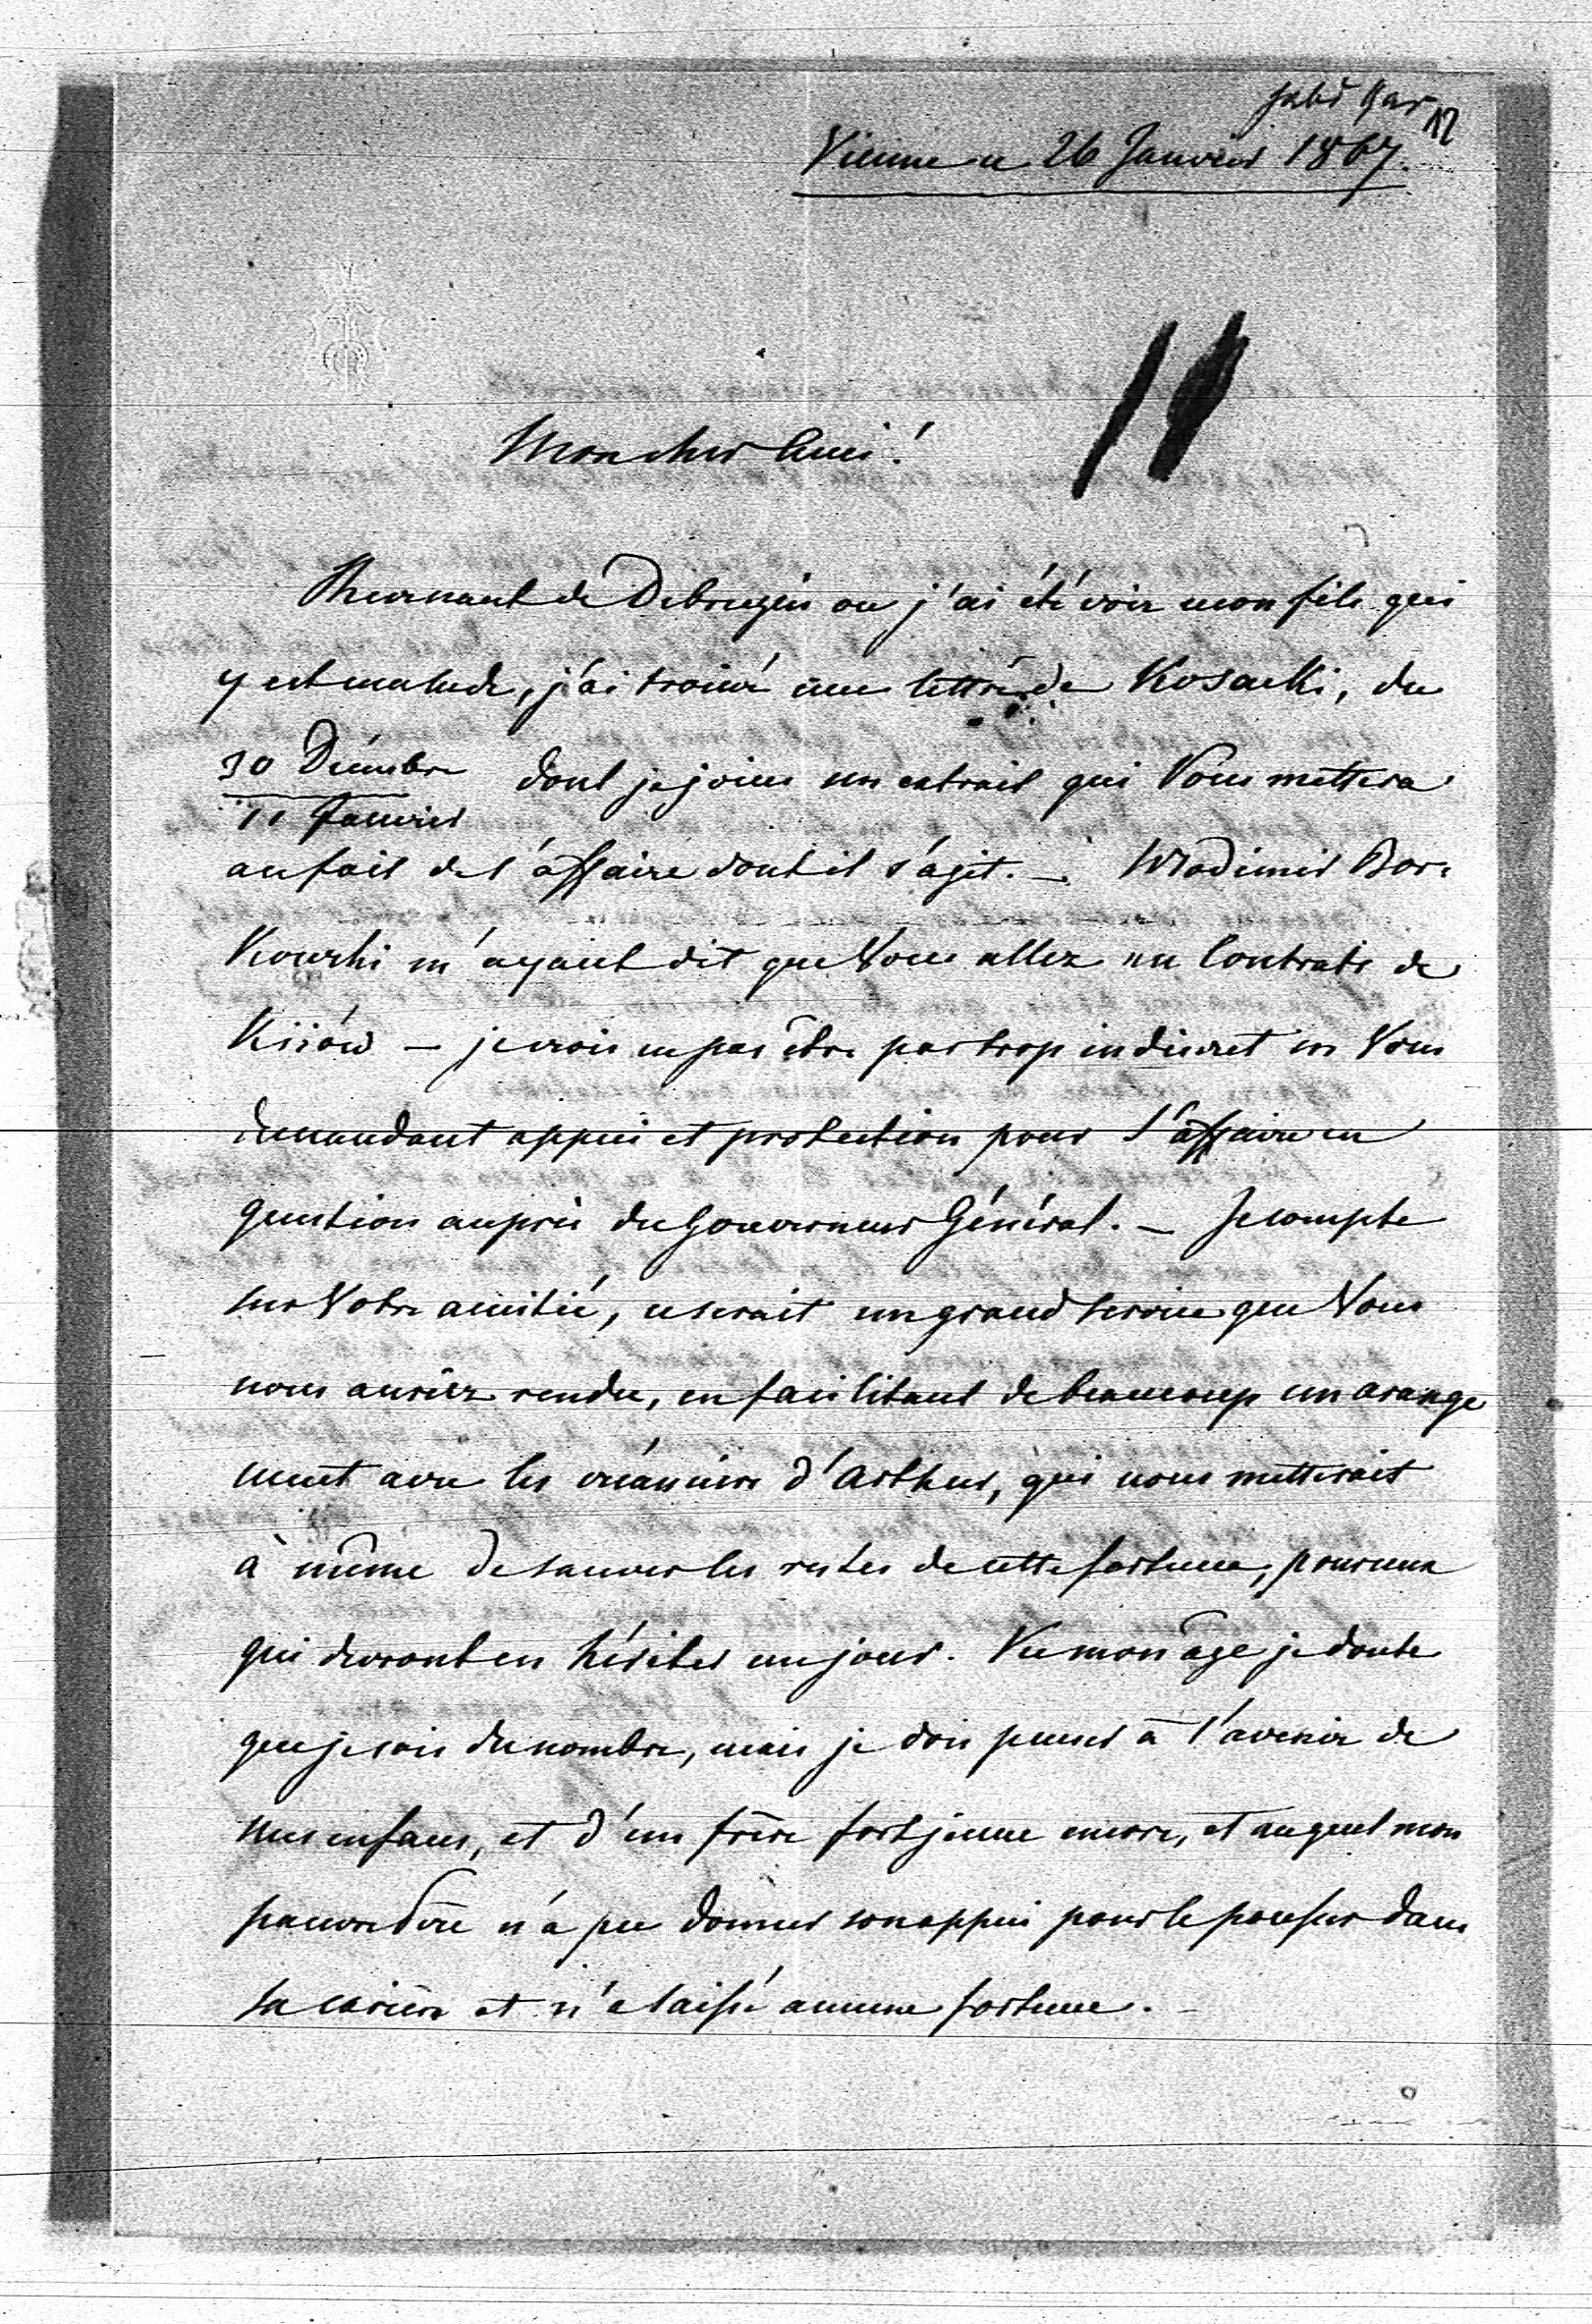 12
Vienne ce 26 Janvier 1867.
11
Mon cher Ami!
Revenant de Debreczin ou j'ai été voir mon fils qui
y est malade, j'ai trouvé une lettre de Kosacki, du
30 Décembre
11 Janvier dont je joins un extrait qui Vous mettera
au fait de l'affaire dont il s'agit. — Wlodimir Bor-
kowski m'ayant dit que Vous allez au Contrats de
Kiiów — je crois ne pas être par trop indiscret en Vous
demandant appui et protection pour l'affaire en
question auprès du Gouverneur Général. — Je compte
sur Votre amitié, ce serait un grand service que Vous
nous auriez rendu, en facilitant de beaucoup un arange
ment avec les créanciers d'Arthur, qui nous metterait
à même de sauver les restes de cette fortune, pour ceux
qui devront en hériter un jour. Vu mon âge je doute
que je sois du nombre, mais je dois penser à l'avenir de
mes enfans, et d'un frère fort jeune encore, et auquel mon
pauvre Père n'a pu donner son appui pour le pousser dans
sa carière et n'a laissé aucune fortune. —